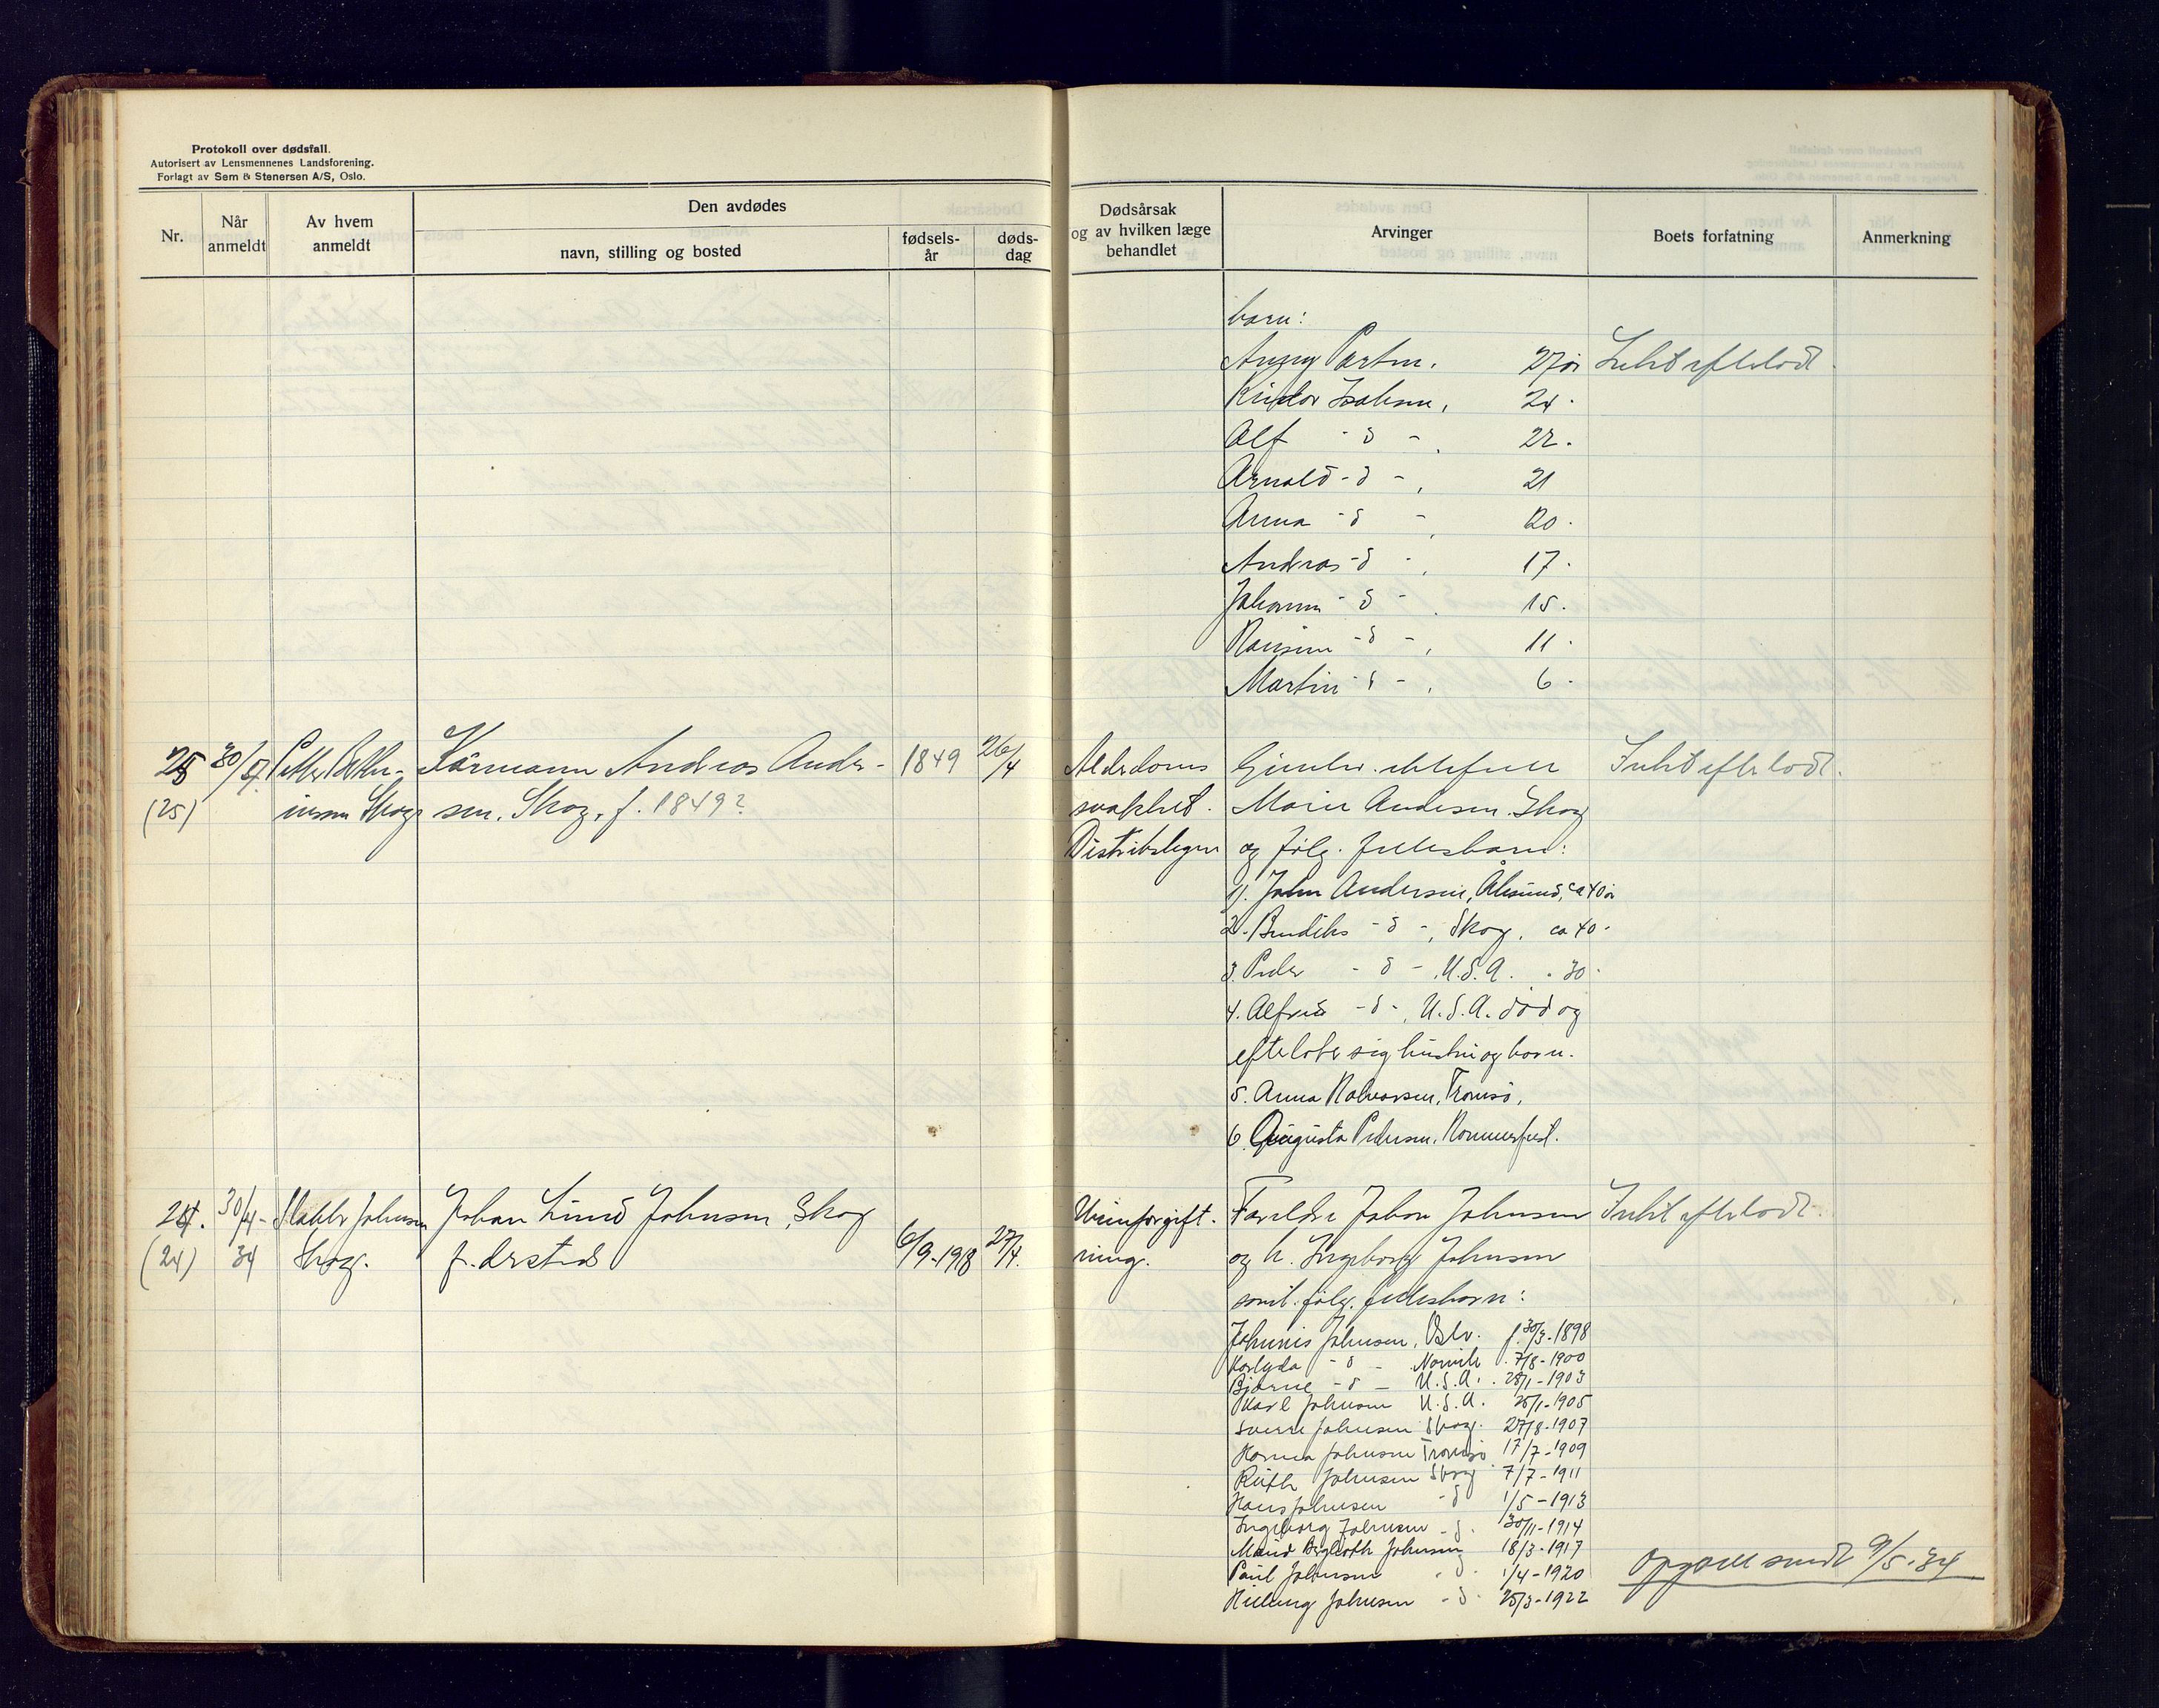 Protokoll over dødsfall.
Autorisert av Lensmennenes Landsforening.
Forlagt av Sem & Stenersen A/S, Oslo.
Nr.
Når anmeldt
Av hvem anmeldt
Den avdødes
navn, stilling og bosted
fødsels-
år
døds-
dag
Dødsårsak
og av hvilken læge
behandlet
Arvinger
Boets forfatning
Anmerkning
barn:
27 år Intet efterlatt.
24.
Alf - d - , 22.
Arnold - d - , 21
Anna - d - , 20.
Andreas - d - , 17.
Johann - d - , 15.
- d - , 11.
Martin - d - , 6.
25 30/4
(25)
Skog
Kårmann Andreas Ander-
sen, Skog, f. 1849?
1849
26/4
Alderdoms
svakhet.
Distriktslegen
Gjenlev. ektefelle
Marie Andersen, Skog
og følg. fellesbarn:
1). John Andersen, Ålesund, ca 40 år
2. Bendiks - d - , Skog, ca 40.
3. Peder - d - , U.S.A. . 30.
4. Alfred - d - , U.S.A. død og
efterlater sig hustru og barn.
5. Anna Halvorsen, Tromsø,
6. Augusta Pedersen, Hammerfest.
Intet efterlatt.
24. 30/4-
(24) 34
Johnsen
Skog.
Johan Lund Johnsen, Skog
f. Ørsted
6/9-1918
27/4.
Urinforgift-
ning.
Foreldre Johan Johnsen
og h. Ingeborg Johnsen
samt. følg. fellesbarn:
Intet efterlatt.
Johannes Johnsen, Oslo. f. 30/3-1898
- d - Narvik . 7/8-1900
Bjarne - d - U.S.A. . 28/1-1903
Karl Johnsen U.S.A. 25/1-1905
Sverre Johnsen Skog. 27/8-1907
Hanna Johnsen Tromsø 17/7-1909
Ruth Johnsen Skog 7/7-1911
Hans Johnsen - d 1/5-1913
Ingeborg Johnsen - d. 30/11-1914
Maud Berglioth Johnsen 18/3-1917
Paul Johnsen - d. 1/4-1920
Johnsen - d. 25/3-1922
Opgave sendt 9/5-34